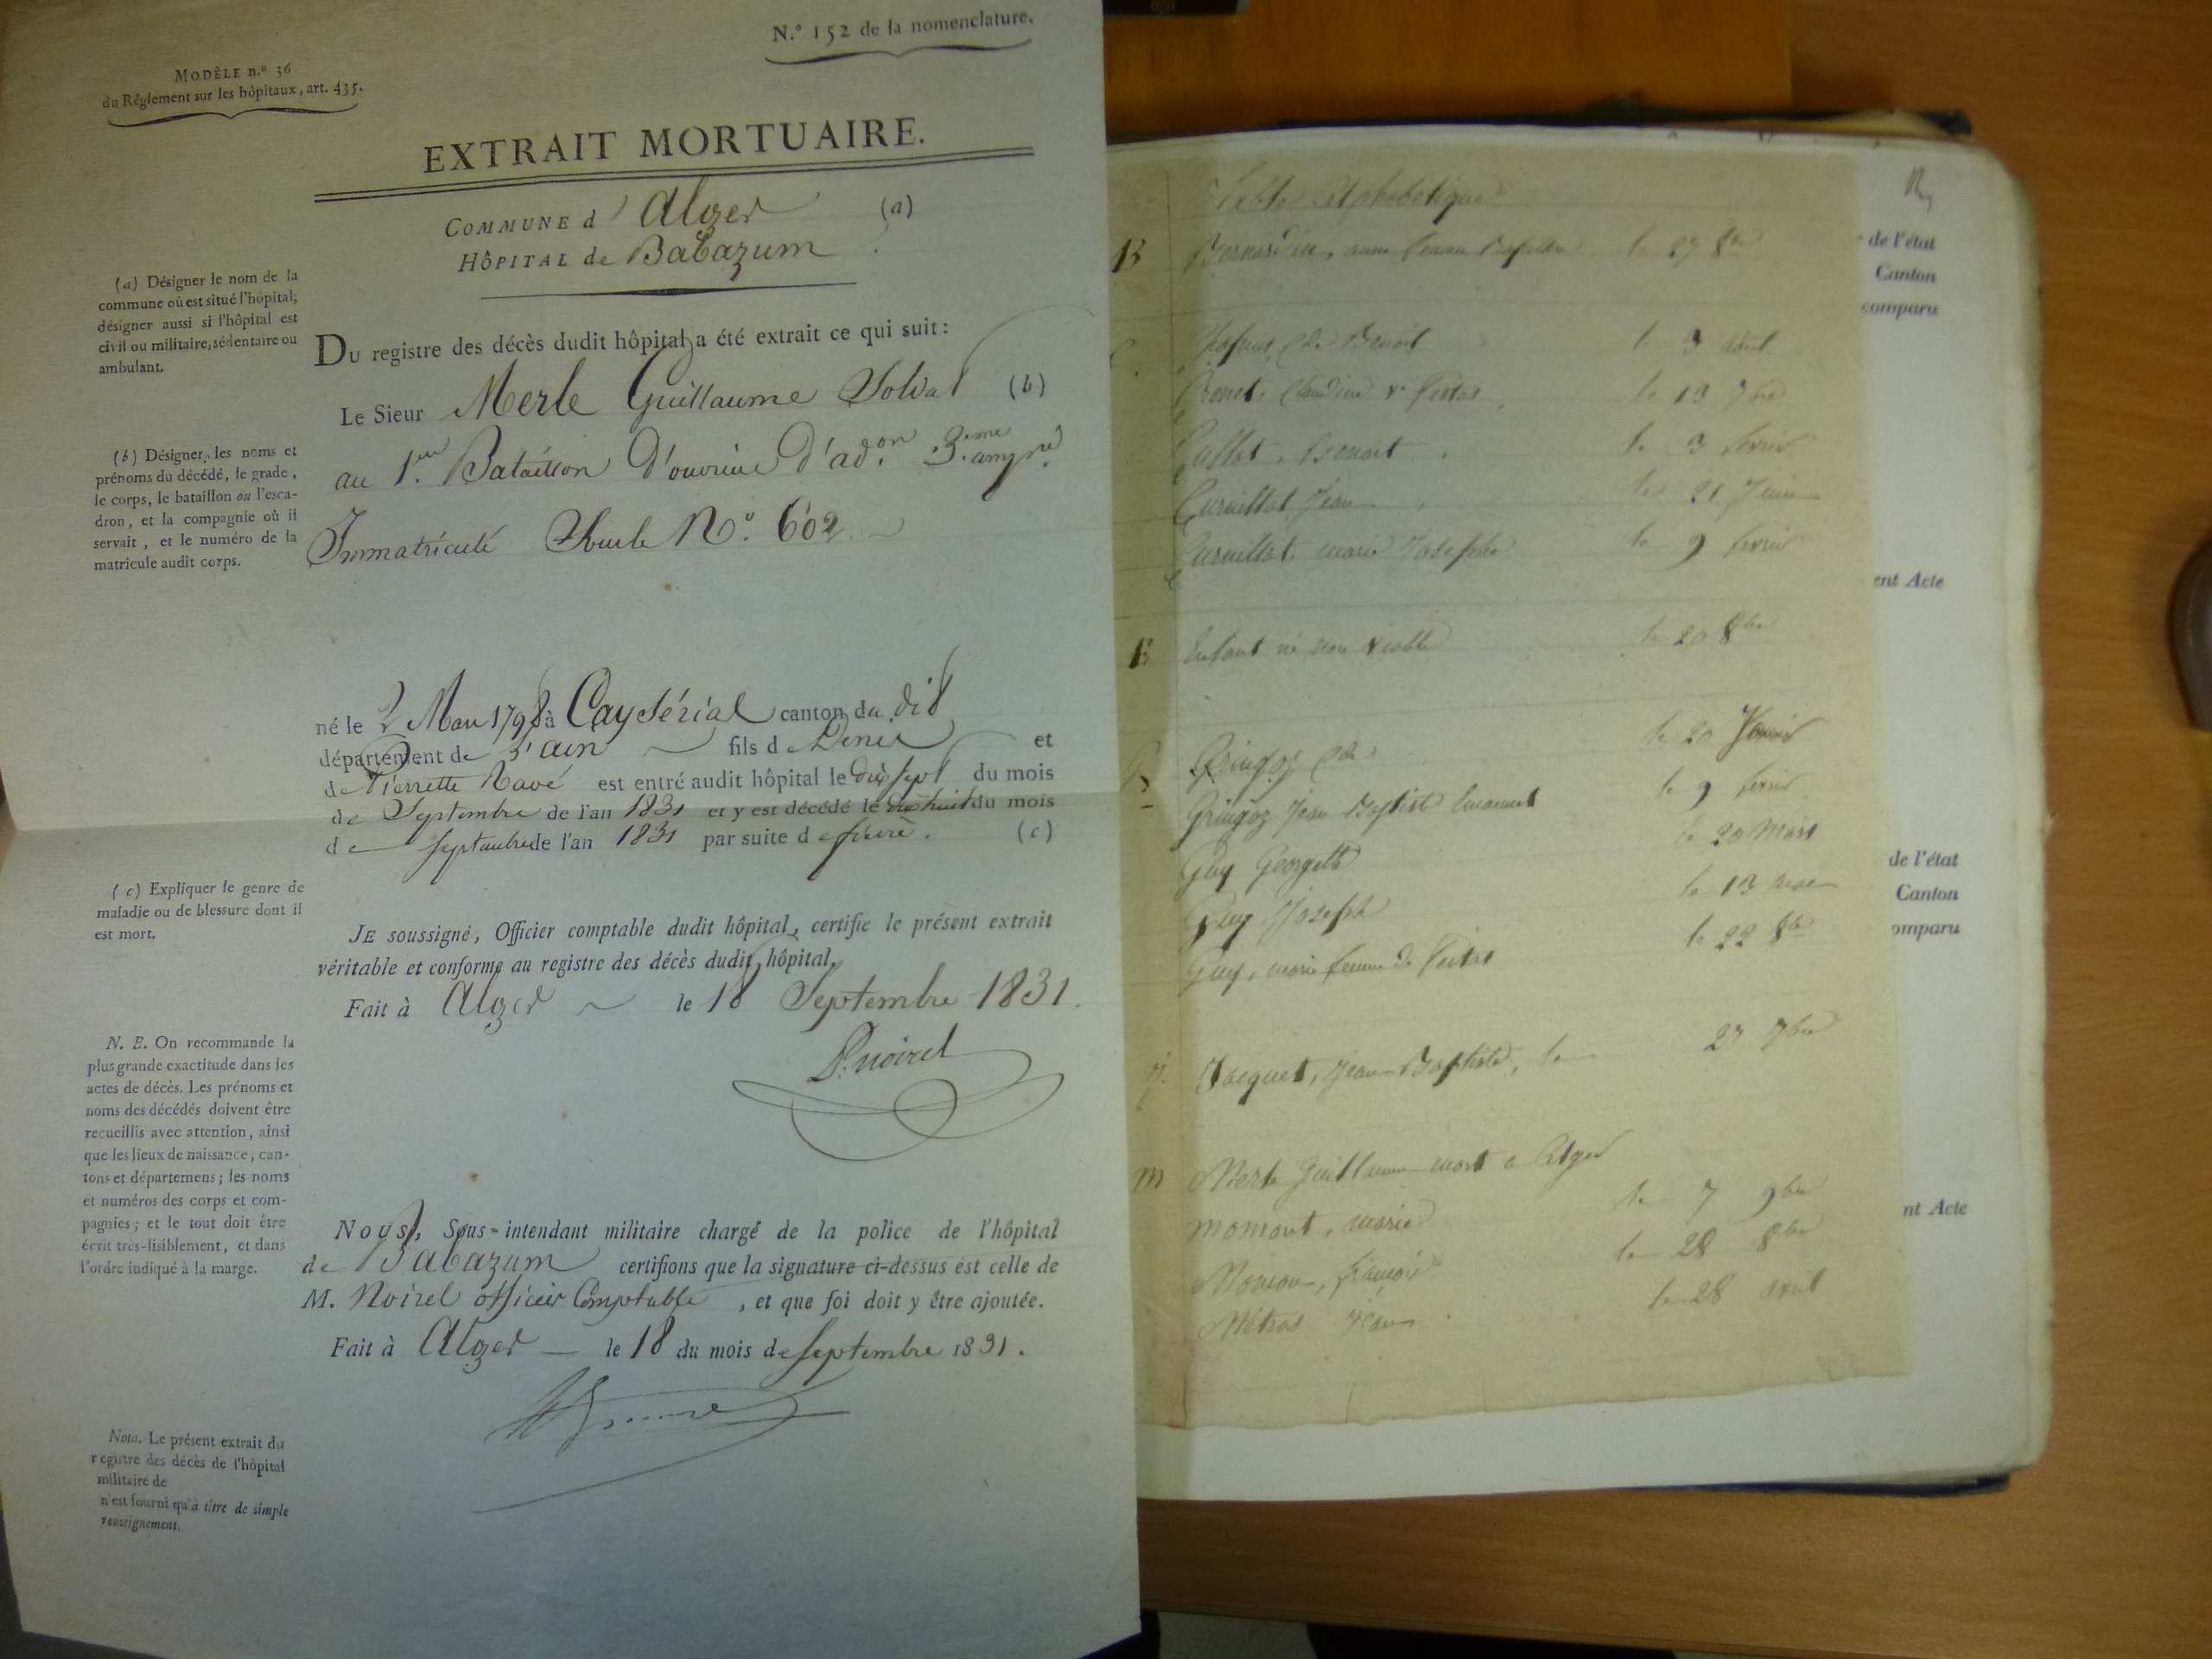 N.º 152 de la nomenclature.
MODÈLE n.º 36
du Réglement sur les hôpitaux, art. 435.
EXTRAIT MORTUAIRE.
COMMUNE d'Alger (a)
HÔPITAL de Babazum
(a) Désigner le nom de la
commune où est situé l'hôpital;
désigner aussi si l'hôpital est
civil ou militaire, sédentaire ou
ambulant.
Du registre des décès dudit hôpital a été extrait ce qui suit:
Le Sieur Merle Guillaume Soldat (b)
au 1.er Bataillon D'ouvriers D'ad.on 3.eme
Immatriculé Sous le N.º 602
(b) Désigner les noms et
prénoms du décédé, le grade,
le corps, le bataillon ou l'esca-
dron, et la compagnie où il
servait, et le numéro de la
matricule audit corps.
né le 2 Mars 1798 à Caysérial canton du dit
département de l'ain fils de Denis et
de Pierrette Ravé est entré audit hôpital le dix sept du mois
de Septembre de l'an 1831 et y est décédé le dix huit du mois
de septembre de l'an 1831 par suite de fièvre. (c)
(c) Expliquer le genre de
maladie ou de blessure dont il
est mort.
JE soussigné, Officier comptable dudit hôpital, certifie le présent extrait
véritable et conforme au registre des décès dudit hôpital.
Fait à Alger le 18 Septembre 1831.
P. Noirel
N. E. On recommande la
plus grande exactitude dans les
actes de décès. Les prénoms et
noms des décédés doivent être
recueillis avec attention, ainsi
que les lieux de naissance, can-
tons et départemens; les noms
et numéros des corps et com-
pagnies; et le tout doit être
écrit très-lisiblement, et dans
l'ordre indiqué à la marge.
Nous, Sous-intendant militaire chargé de la police de l'hôpital
de Babazum certifions que la signature ci-dessus est celle de
M. Noirel officier Comptable, et que foi doit y être ajoutée.
Fait à Alger le 18 du mois de septembre 1831.
Nota. Le présent extrait du
registre des décès de l'hôpital
militaire de
n'est fourni qu'à titre de simple
renseignement.
Table Alphabétique
B Bernardin, femme le 27 8bre
C. Benoit le 3 août
Claudine le 13 7bre
Benoit le 3 fevrier
Curvillat Jean le 21 Juin
Curvillat marie Josephe le 9 fevrier
E Enfant né non viable le 20 8bre
G Gringoz le 20
Gringoz Jean Baptiste Emanuel le 9 fevrier
Guy Georgette le 20 Mars
Guy Joseph le 13 mars
Guy, marie femme de le 22 8bre
J. Jacquet, Jean Baptiste, le 27 7bre
M Merle Guillaume mort a Alger
momont, marie le 7 9bre
le 28 8bre
Métras Jean le 28 avril
de l'état
Canton
comparu
ent Acte
de l'état
Canton
omparu
nt Acte